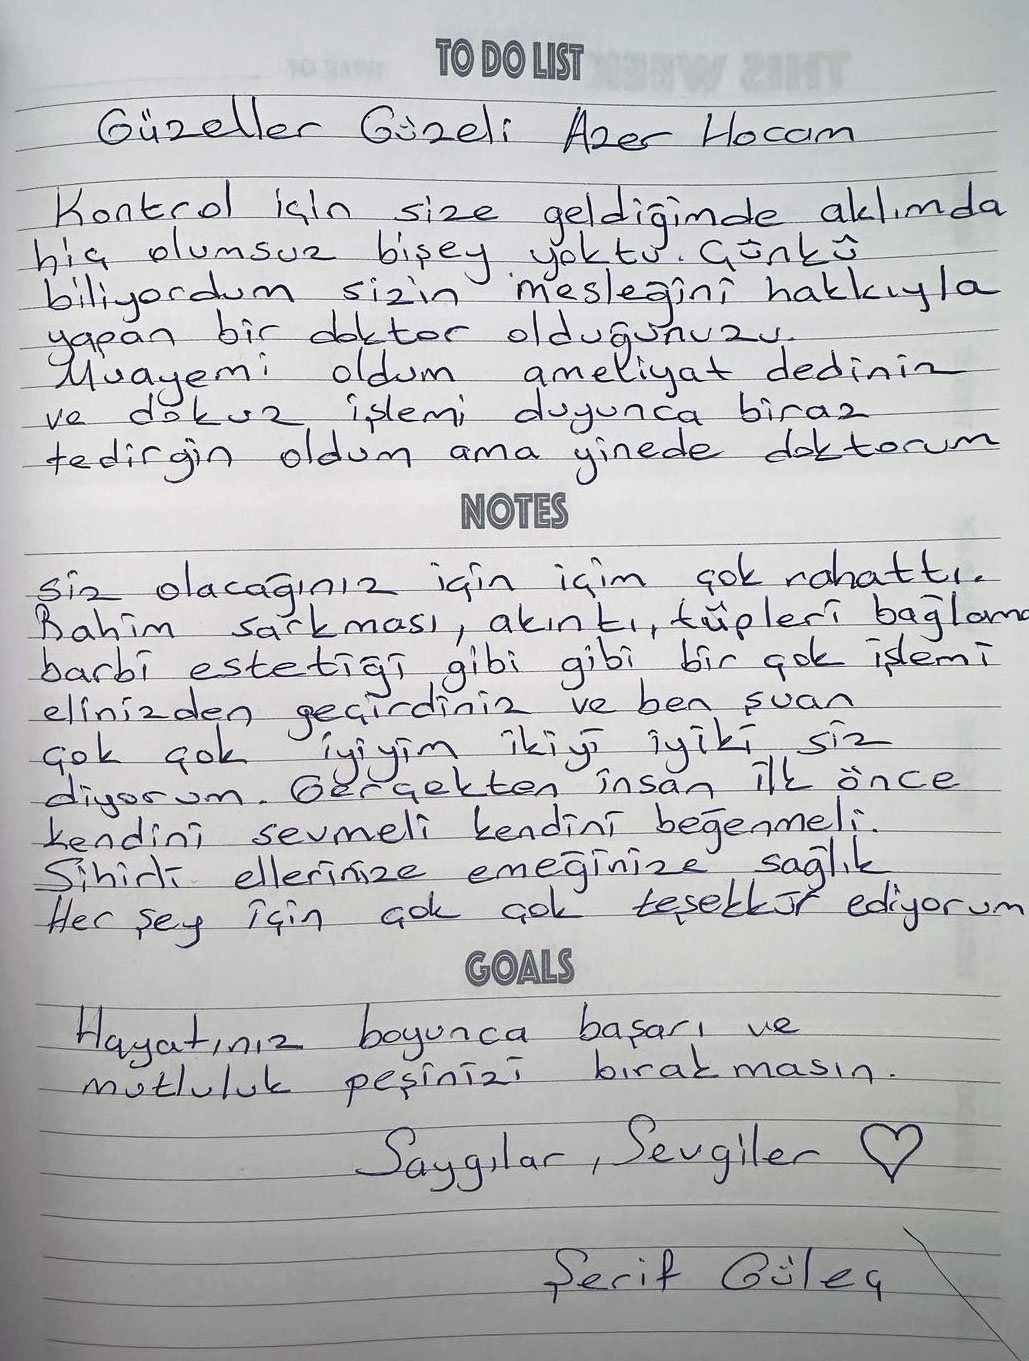 TO DO LIST
Güzeller Güzeli Azer Hocam
Kontrol için size geldiğimde aklımda
hiç olumsuz bişey yoktu. Çünkü
biliyordum sizin mesleğini hakkıyla
yapan bir doktor olduğunuzu.
Muayemi oldum ameliyat dediniz
ve dokuz işlemi duyunca biraz
tedirgin oldum ama yinede doktorum
NOTES
siz olacağınız için içim çok rahattı.
Rahim sarkması, akıntı, tüpleri bağlama
barbi estetiği gibi gibi bir çok işlemi
elinizden geçirdiniz ve ben şuan
çok çok iyiyim ikiyi iyiki siz
diyorum. Gerçekten insan ilk önce
kendini sevmeli kendini beğenmeli.
Sihirli ellerinize emeğinize sağlık
Her şey için çok çok teşekkür ediyorum
GOALS
Hayatınız boyunca başarı ve
mutluluk peşinizi bırakmasın.
Saygılar, Sevgiler ♡
Şerif Güleç